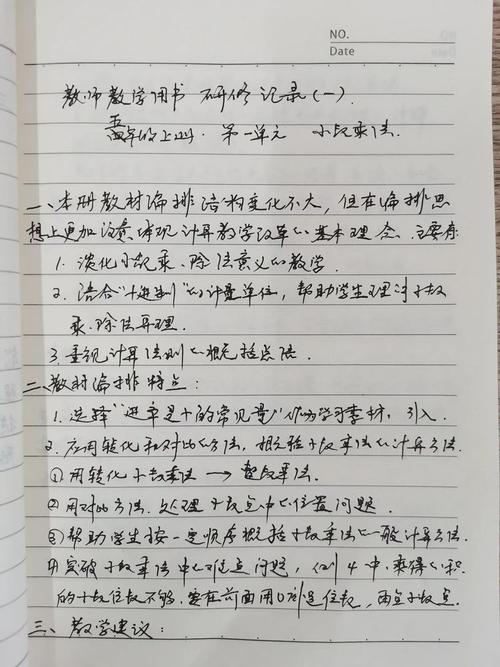 NO.
Date
教师教学用书 研修记录(一).
五年级上册. 第一单元 小数乘法.
一、本册教材编排结构变化不大,但在编排思
想上更加注意体现计算教学改革的基本理念.主要有:
1. 淡化小数乘、除法意义的教学.
2. 结合"十进制"的计量单位,帮助学生理解小数
乘、除法算理.
3. 重视计算法则的概括总结.
二、教材编排特点:
1. 选择"进率是十的常见量"作为学习素材,引入.
2. 应用转化和对比的方法,概括小数乘法的计算方法.
①用转化 小数乘法 → 整数乘法.
②用对比方法.处理小数点的位置问题.
③帮助学生按一定顺序概括小数乘法的一般计算方法.
④突破小数乘法中的难点问题,例4中.乘得的积
的小数位数不够.要在前面用0补足位数,再点小数点.
三、教学建议: